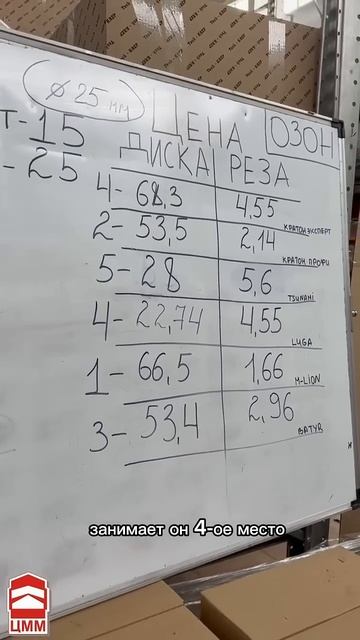 ø 25 мм
ЦЕНА
ОЗОН
т-15
-25
ДИСКА РЕЗА
4- 68,3 4,55
КРАТОН ЭКСПЕРТ
2- 53,5 2,14
КРАТОН ПРОФИ
5- 28 5,6
TSUNAMI
4- 22,74 4,55
LUGA
1- 66,5 1,66
M-LION
3- 53,4 2,96
BATYR
занимает он 4-ое место
ЦММ